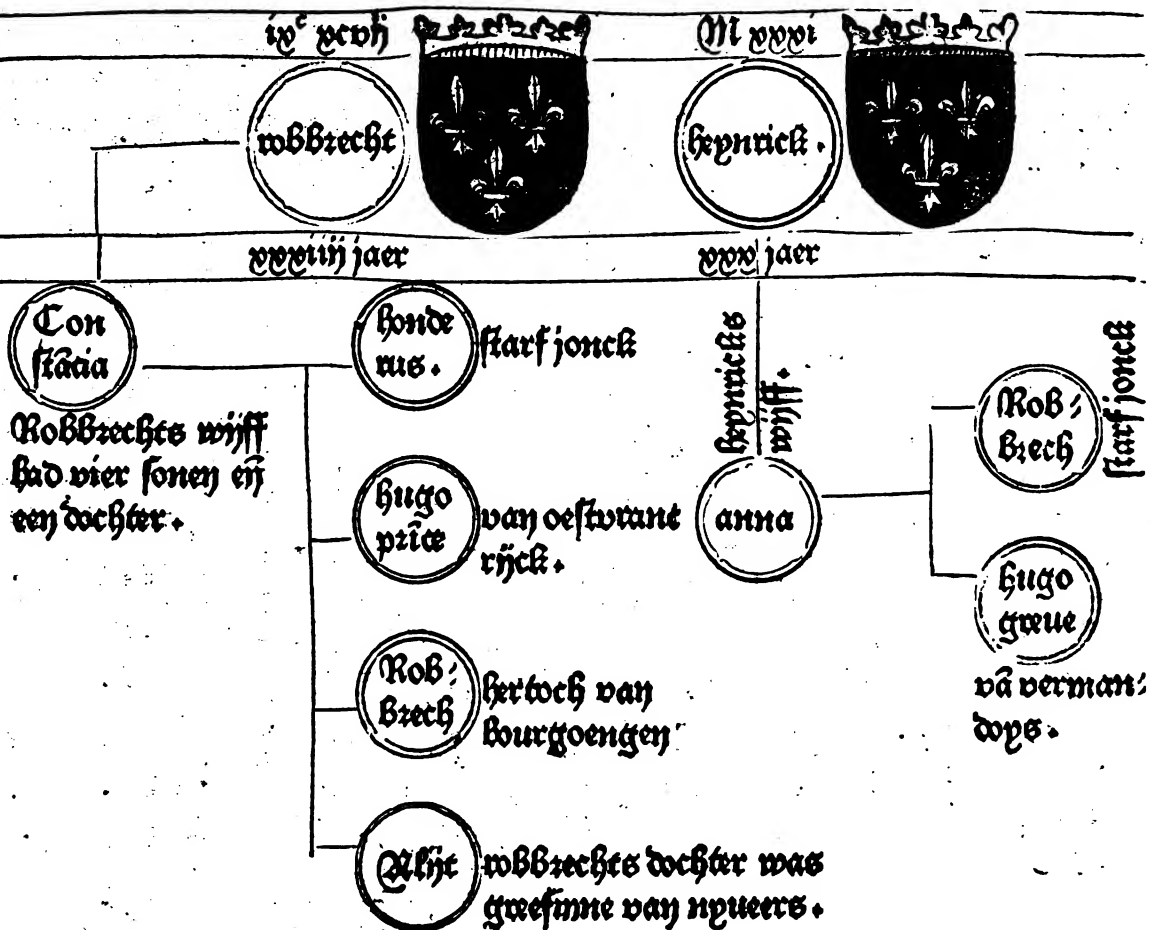 ixᶜ xcvij
M xxxi
robbrecht
heynrick.
xxxiiij jaer
xxx jaer
Con
stācia
Robbrechts wijff
had vier sonen eñ
een dochter.
honde
rus.
starf jonck
hugo
prīce
van oestvranc
rijck.
Rob:
brech
hertoch van
bourgoengen
Alijt
robbrechts dochter was
greefinne van nyueers.
heynricks
wijff.
anna
Rob:
brech
starf jonck
hugo
greue
vā verman:
doys.